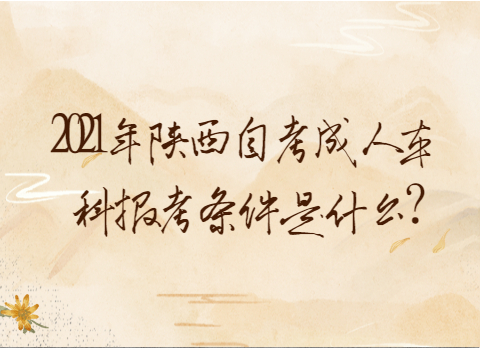 2021年陕西自考成人本
科报考条件是什么?